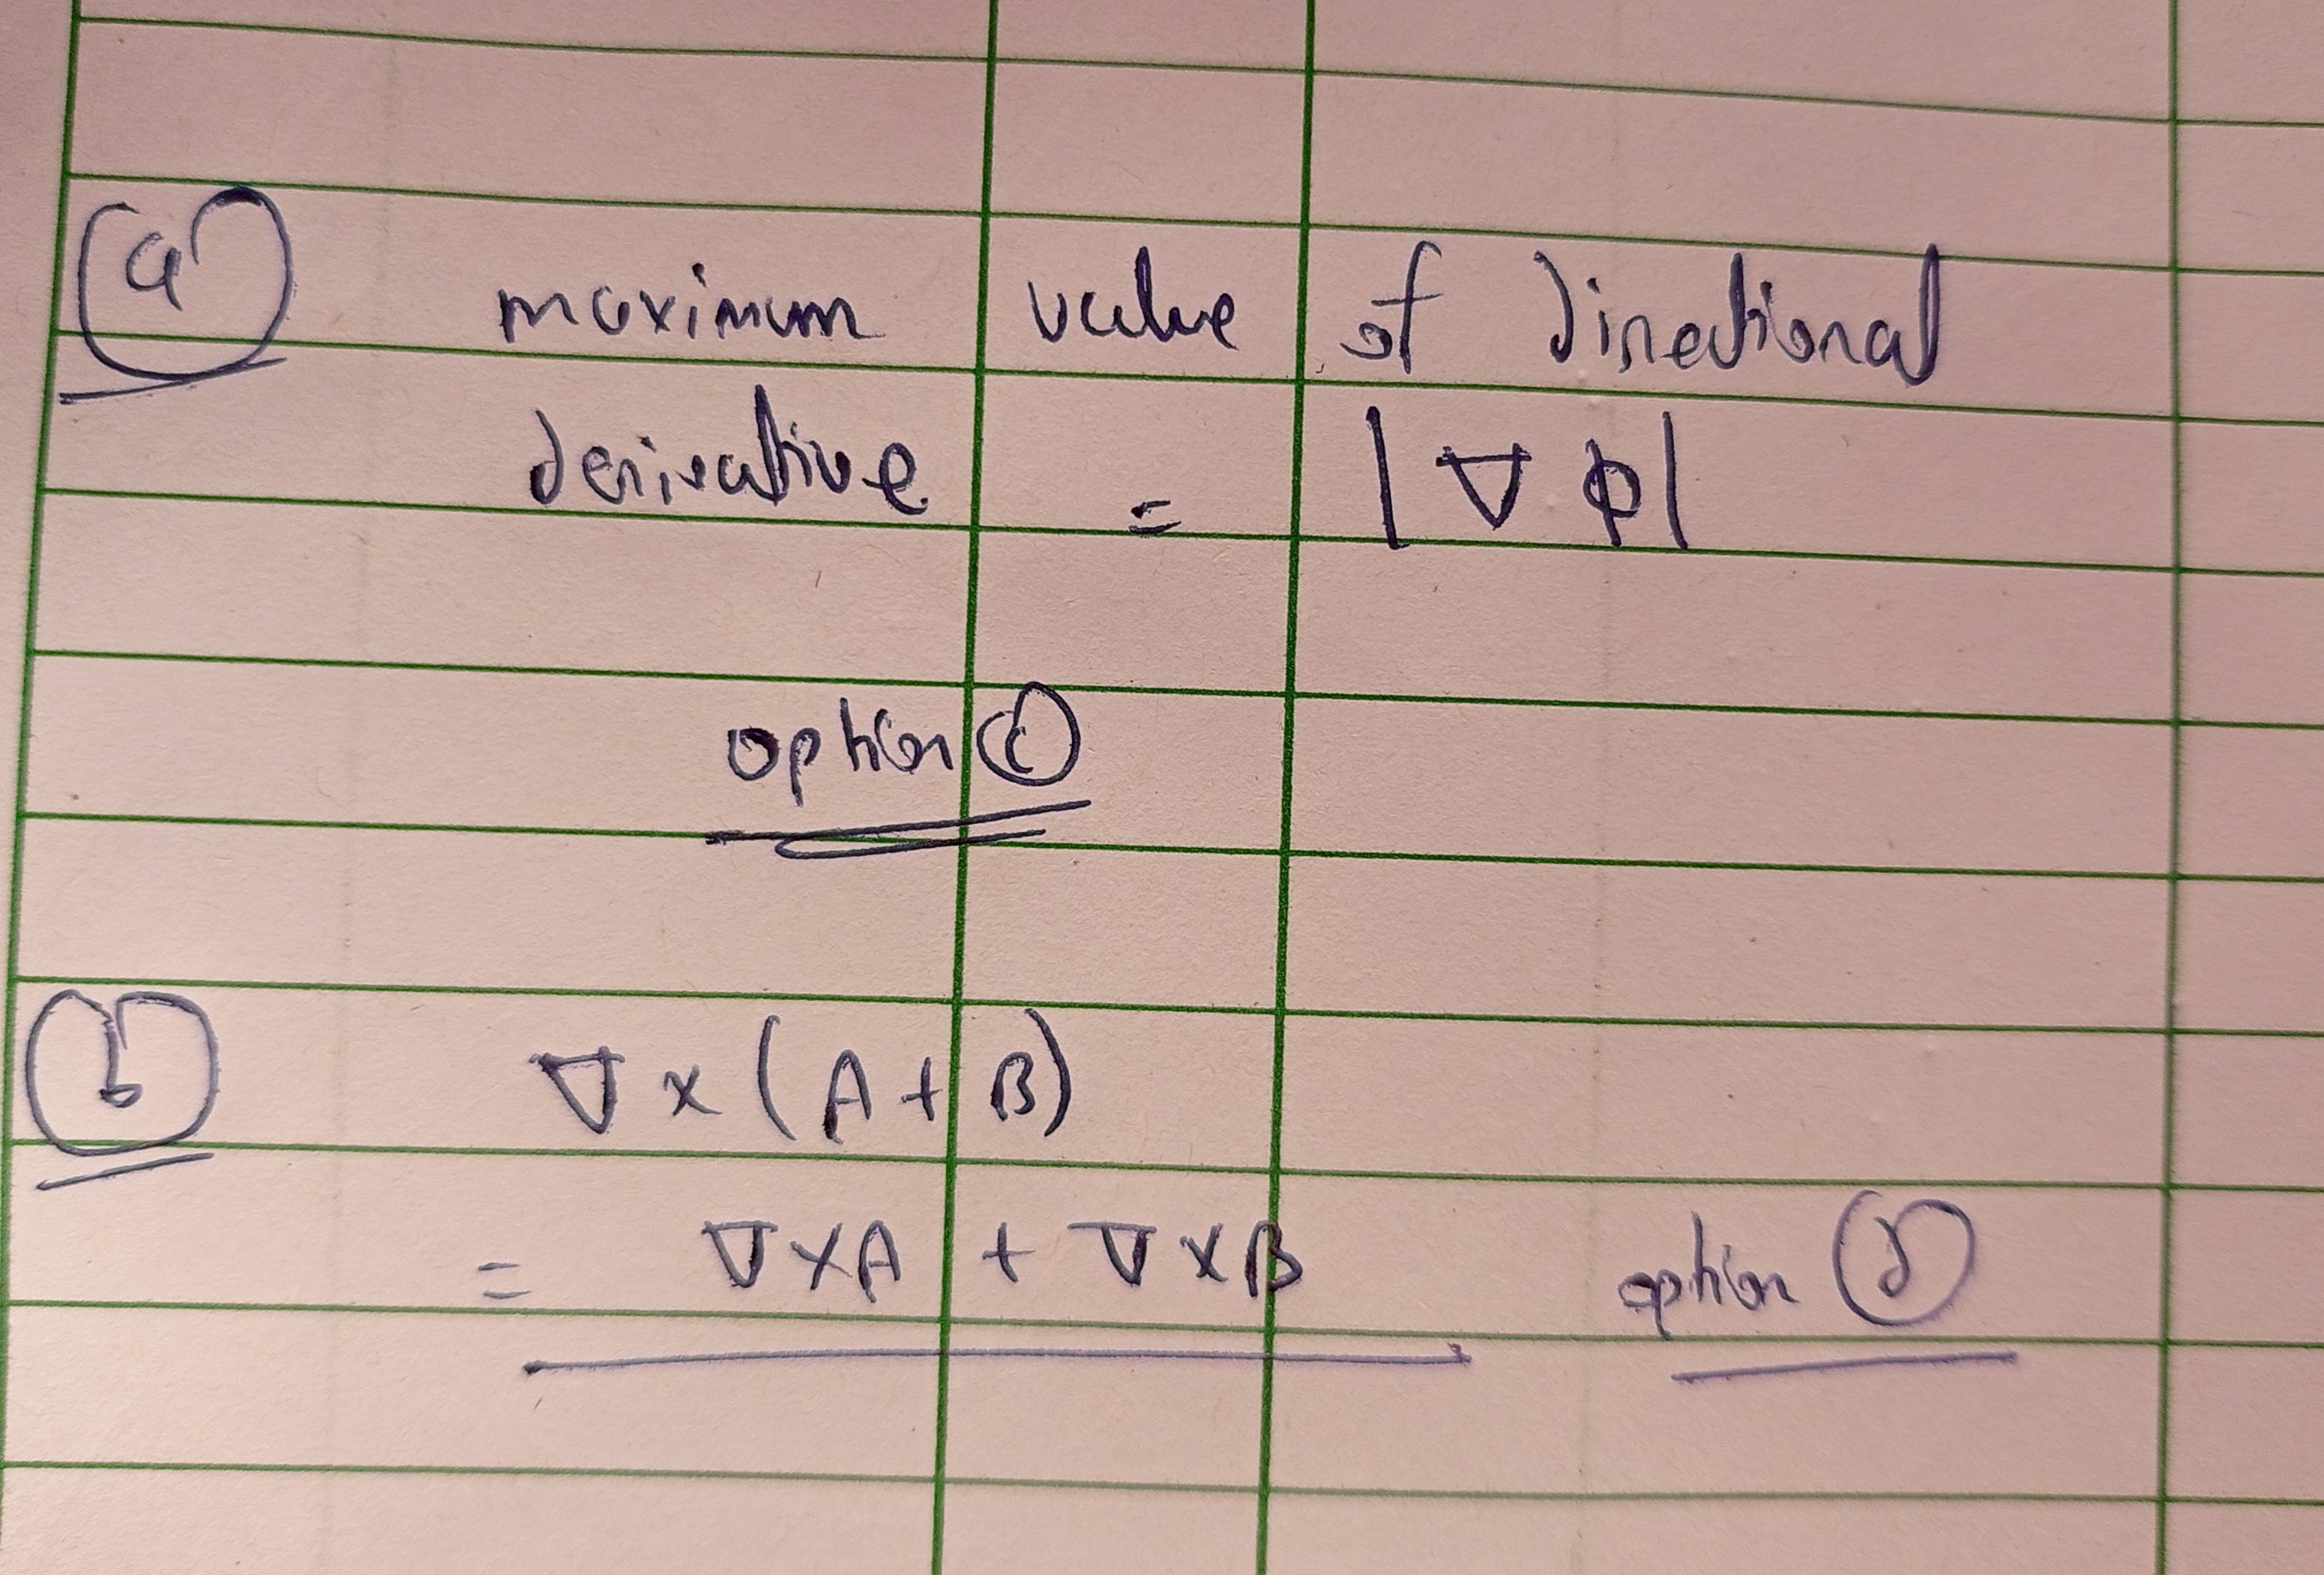 (a) maximum value of directional
derivative = |∇ φ|
option (c)
(b) ∇ × (A + B)
= ∇×A + ∇×B option (d)